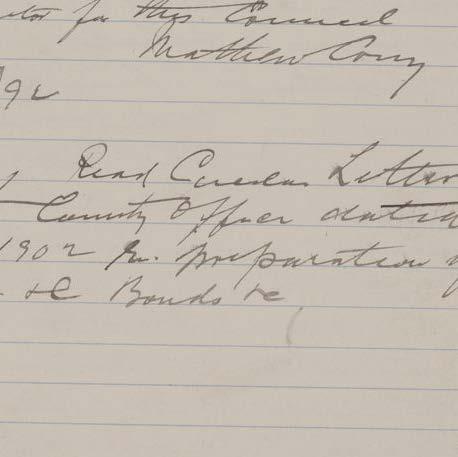 for this Council
Mathew Corry
Read Circular Letter
County Officer dated
1902 re. preparation
&c Bonds &c